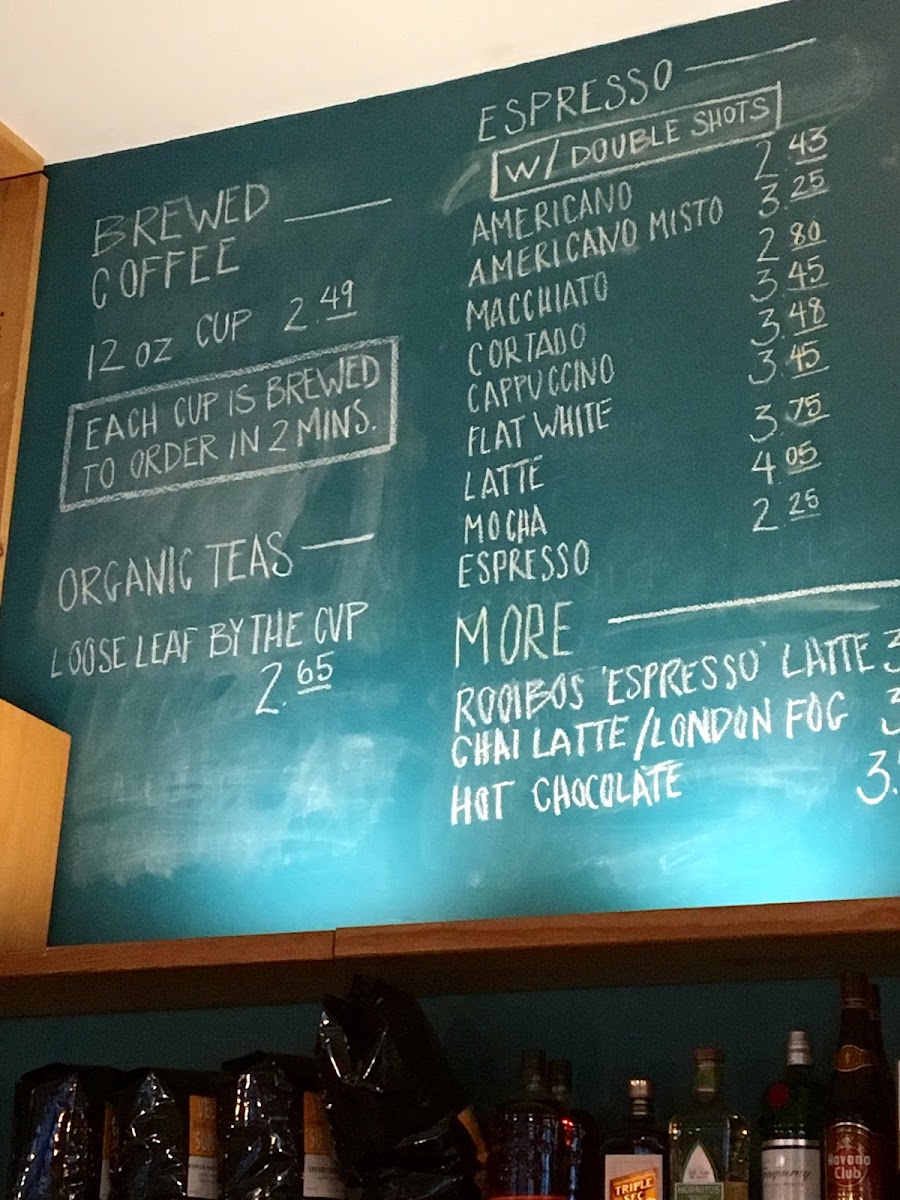 BREWED
COFFEE
12 OZ CUP 2.49
EACH CUP IS BREWED
TO ORDER IN 2 MINS.
ORGANIC TEAS
LOOSE LEAF BY THE CUP
2.65
ESPRESSO
W/ DOUBLE SHOTS
AMERICANO 2.43
AMERICANO MISTO 3.25
MACCHIATO 2.80
CORTADO 3.45
CAPPUCCINO 3.48
FLAT WHITE 3.45
LATTE 3.75
MOCHA 4.05
ESPRESSO 2.25
MORE
ROOIBOS 'ESPRESSO' LATTE 3
CHAI LATTE/LONDON FOG 3
HOT CHOCOLATE 3.
TRIPLE
SEC
HORNITOS
Tanqueray
Havana
Club